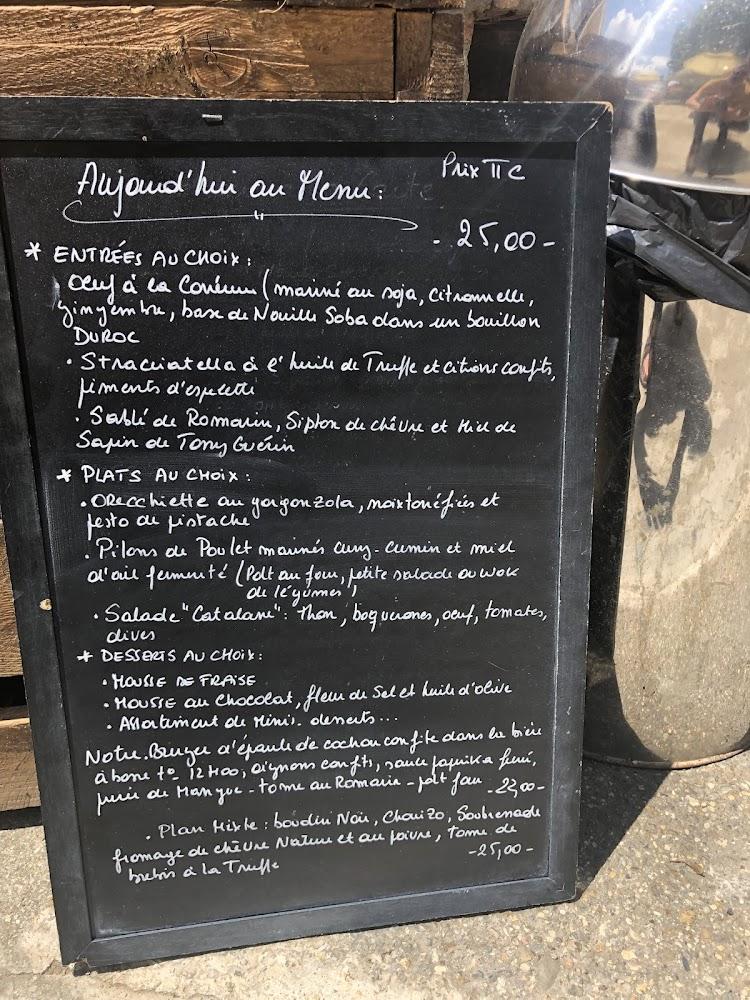 Aujourd'hui au Menu :
Prix TTC
- 25,00 -
* ENTRÉES AU CHOIX :
Oeuf à la Coréenne (mariné au soja, citronnelle,
gingembre, base de Nouille Soba dans un bouillon
DUROC
· Straciatella à l'huile de Truffe et citrons confits,
piments d'espelette
· Sablé de Romarin, Siphon de chèvre et Miel de
Sapin de Tony Guérin
* PLATS AU CHOIX :
· Orecchiette au gorgonzola, noix torréfiées et
pesto de pistache
· Pilons de Poulet marinés curry-cumin et miel
d'ail fermenté (Pdt au four, petite salade ou wok
de légumes)
· Salade "Catalane" : Thon, boquerones, oeuf, tomates,
olives
* DESSERTS AU CHOIX :
· MOUSSE DE FRAISE
· MOUSSE au Chocolat, fleur de Sel et huile d'olive
· Assortiment de Minis-desserts...
Notre Burger d'épaule de cochon confite dans la bière
à basse t° 12H00, oignons confits, sauce paprika fumé,
purée de Mangue - tome au Romarin - pdt four - 22,00 -
· Plan Mixte : boudin Noir, Chorizo, Soubressade
fromage de chèvre Nature et au poivre, tome de
brebis à la Truffe
- 25,00 -